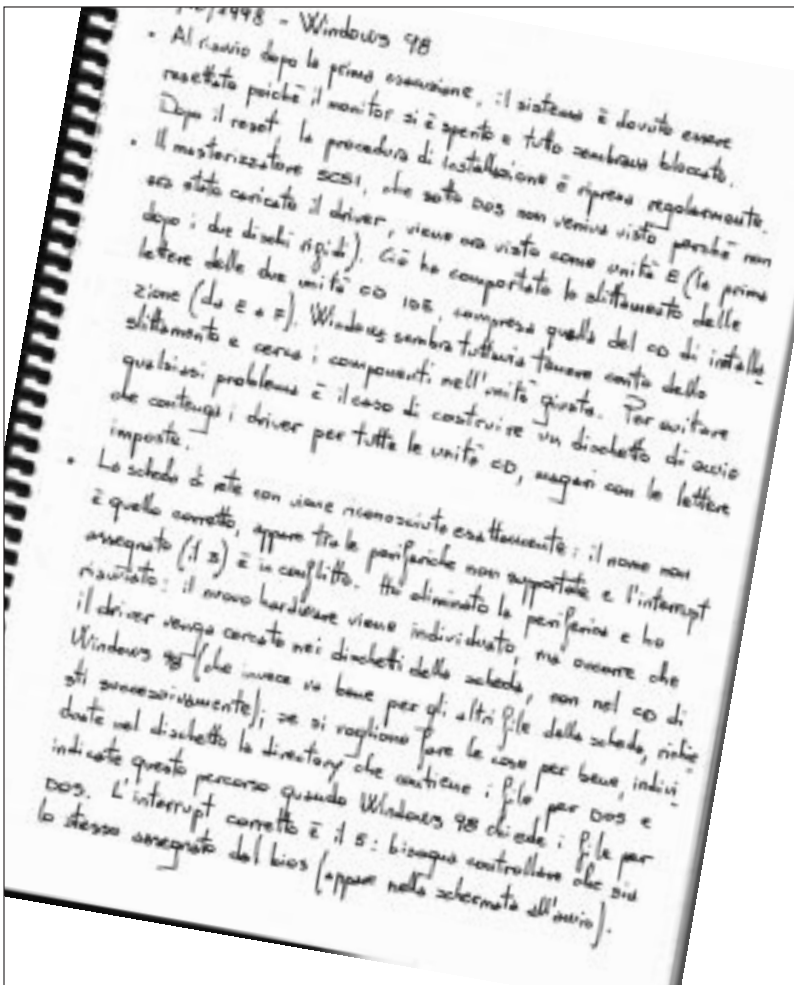 /1998 - Windows 98
• Al riavvio dopo la prima esecuzione, il sistema è dovuto essere
resettato poichè il monitor si è spento e tutto sembrava bloccato.
Dopo il reset, la procedura di installazione è ripresa regolarmente.
• Il masterizzatore SCSI, che sotto DOS non veniva visto perchè non
era stato caricato il driver, viene ora visto come unità E (la prima
dopo i due dischi rigidi). Ciò ha comportato lo slittamento delle
lettere delle due unità CD IDE, compresa quella del CD di installa
zione (da E a F). Windows sembra tuttavia tenere conto dello
slittamento e cerca i componenti nell'unità giusta. Per evitare
qualsiasi problema è il caso di costruire un dischetto di avvio
che contenga i driver per tutte le unità CD, magari con le lettere
imposte.
• La scheda di rete non viene riconosciuta esattamente: il nome non
è quello corretto, appare tra le periferiche non supportate e l'interrupt
assegnato (il 3) è in conflitto. Ho eliminato la periferica e ho
riavviato: il nuovo hardware viene individuato, ma occorre che
il driver venga cercato nei dischetti della scheda, non nel CD di
Windows 98 (che invece va bene per gli altri file della scheda, richie
sti successivamente); se si vogliono fare le cose per bene, indivi
duate nel dischetto la directory che contiene i file per DOS e
indicate questo percorso quando Windows 98 chiede i file per
DOS. L'interrupt corretto è il 5: bisogna controllare che sia
lo stesso assegnato dal bios (appare nella schermata all'avvio).